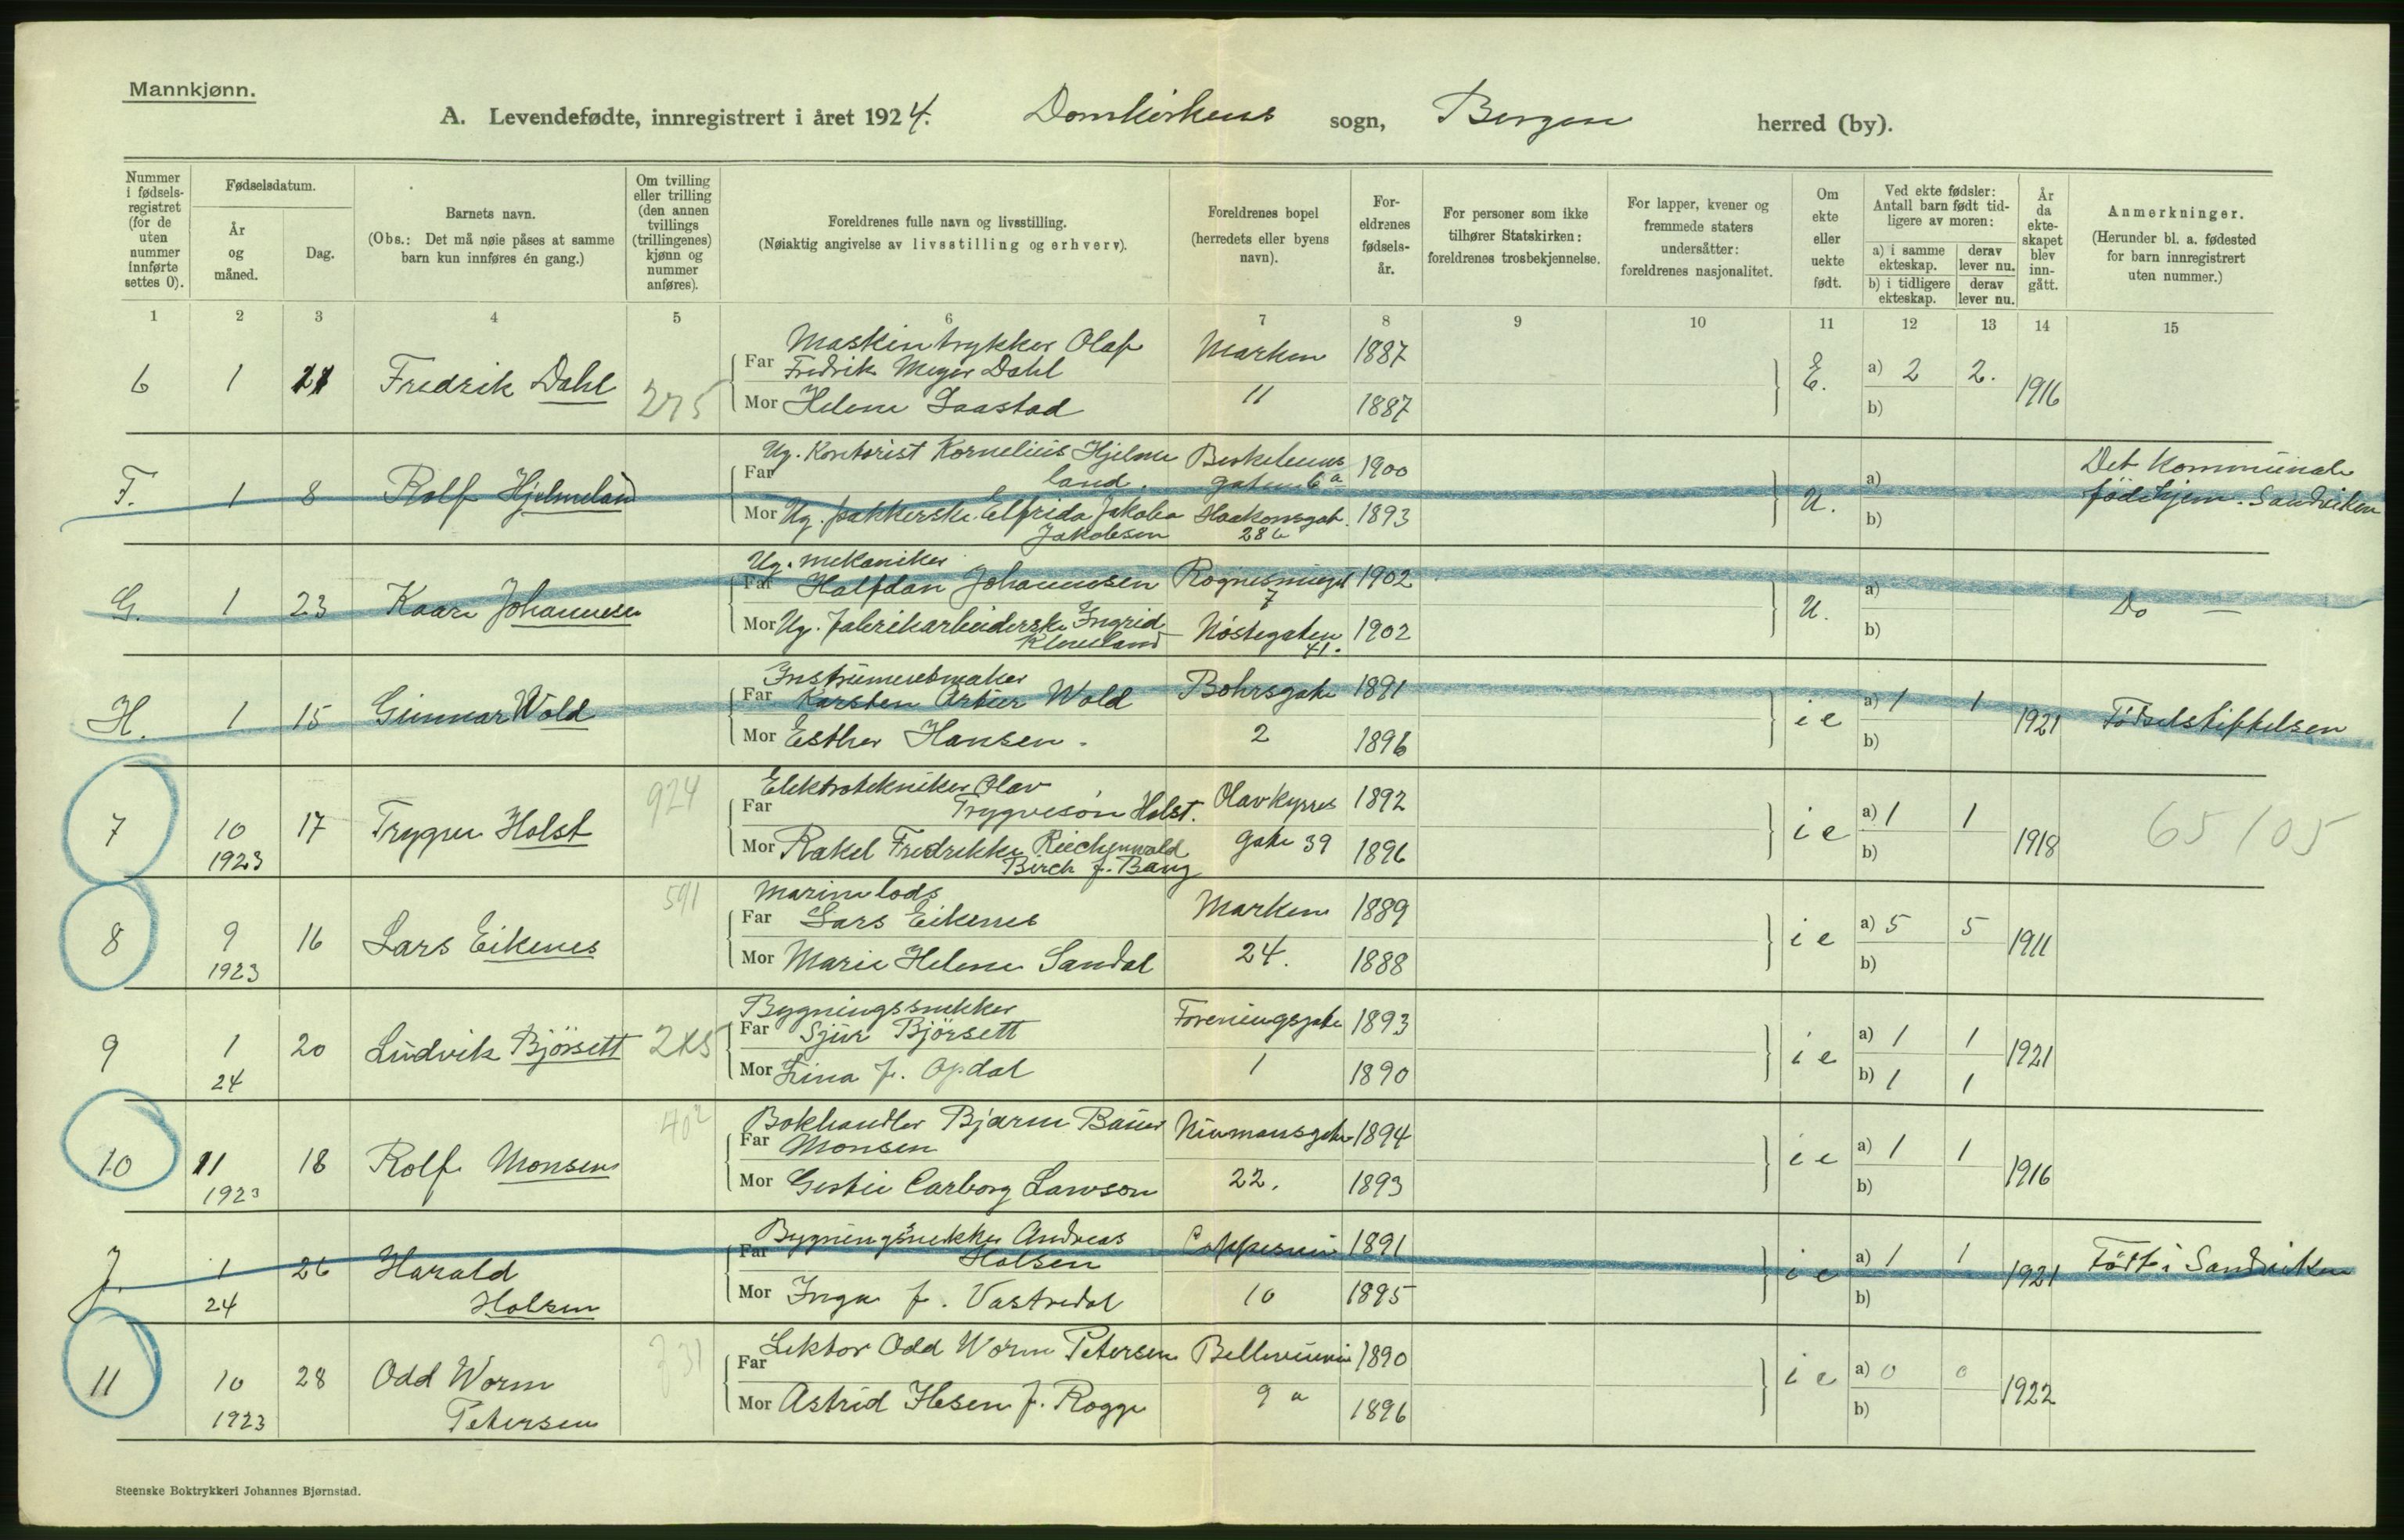 Mannkjønn.
A. Levendefødte, innregistrert i året 1924. Domkirkens sogn, Bergen herred (by).
Nummer i fødsels-registret (for de uten nummer innførte settes 0).
Fødselsdatum.
År og måned.
Dag.
Barnets navn.
(Obs.: Det må nøie påses at samme barn kun innføres én gang.)
Om tvilling eller trilling (den annen tvillings (trillingenes) kjønn og nummer anføres).
Foreldrenes fulle navn og livsstilling.
(Nøiaktig angivelse av livsstilling og erhverv).
Foreldrenes bopel (herredets eller byens navn).
For-eldrenes fødsels-år.
For personer som ikke tilhører Statskirken: foreldrenes trosbekjennelse.
For lapper, kvener og fremmede staters undersåtter: foreldrenes nasjonalitet.
Om ekte eller uekte født.
Ved ekte fødsler: Antall barn født tid-ligere av moren:
a) i samme ekteskap. derav lever nu.
b) i tidligere ekteskap. derav lever nu.
År da ekte-skapet blev inn-gått.
Anmerkninger.
(Herunder bl. a. fødested for barn innregistrert uten nummer.)
1 2 3 4 5 6 7 8 9 10 11 12 13 14 15
6 1 21 Fredrik Dahl 275
Maskintrykker Olaf
Far Fredrik Meyer Dahl Marken 1887
Mor Helene Saastad 11 1887
E. a) 2 2. 1916
b)
F. 1 8 Rolf Hjelmeland
Ug. Kontorist Kornelius Hjelme
Far land. Birkelunds gaten 6a 1900
Mor Ug. pakkerske Elfrida Jakoba Haakonsgat. 1893
Jakobsen 28
U. a)
b)
Det Kommunale
fødehjem. Sandviken
G. 1 23 Kaare Johannesen
Ug. mekaniker
Far Halfdan Johannesen Rognesmuget 1902
7
Mor Ug. Fabrikarbeiderske Ingrid
Kleveland Nöstegaten 1902
41.
U. a)
b)
Do —
H. 1 15 Gunnar Wold
Instrumentmaker
Far Karsten Artur Wold Bohrsgate 1891
Mor Esther Hansen. 2 1896
i e a) 1 1 1921
b)
Fødselstiftelsen
7 10 17 Trygve Holst 924
1923
Elektrotekniker Olav
Far Trygveson Holst. Olav Kyrres 1892
Mor Rakel Fredrikke Reichenwald
Birch f. Bang gate 39 1896
i e a) 1 1 1918
b)
65/05
8 9 16 Lars Eikenes 591
1923
Marinelods
Far Lars Eikenes Marken 1889
Mor Marie Helene Sandal 24. 1888
i e a) 5 5 1911
b)
9 1 20 Ludvik Björsett
24
Bygningssnekker
Far Sjur Björsett Foreningsgate 1893
Mor Lina f. Opdal 1 1890
i e a) 1 1 1921
b) 1 1
10 11 18 Rolf Monsen 402
1923
Bokhandler Bjarne Bauer
Far Monsen Neumansgate 1894
Mor Gertie Carborg Lawson 22. 1893
i e a) 1 1 1916
b)
J. 1 26 Harald
24 Holsen
Bygningsnekker Andreas
Far Holsen 1891
Mor Inga f. Vastvedal 10 1895
i e a) 1 1 1921
b)
Født i Sandviken
11 10 28 Odd Worm
1923 Petersen
Far Lektor Odd Worm Petersen Bellevuevei 1890
Mor Astrid Ilesen f. Rogge 9 a 1896
i e a) 0 0 1922
b)
Steenske Boktrykkeri Johannes Bjørnstad.